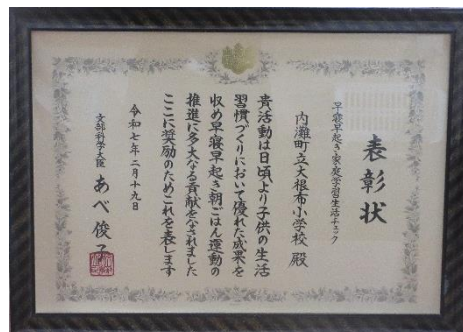 表彰状
早寝早起き・家庭学習生活チェック
内灘町立大根布小学校 殿
貴活動は日頃より子供の生活
習慣づくりにおいて優れた成果を
収め早寝早起き朝ごはん運動の
推進に多大なる貢献をなされました
ここに奨励のためこれを表します
令和七年二月十九日
文部科学大臣 あべ俊子